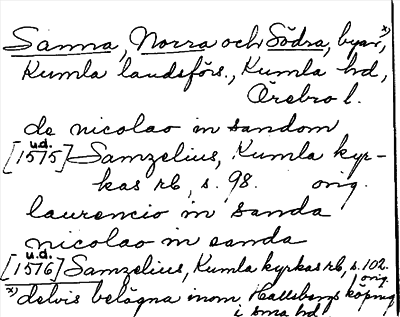 Sanna, Norra och Södra, byar, x)
Kumla landsförs., Kumla hd,
Örebro l.
de nicolao in sandom
u.d.
[1575] Samzelius, Kumla kyr-
kas rb, s. 98. orig.
laurencio in sanda
nicolao in sanda
u.d.
[1576] Samzelius, Kumla kyrkas rb, s. 102.
orig.
x) delvis belägna inom Hallsbergs köping
i sma hd